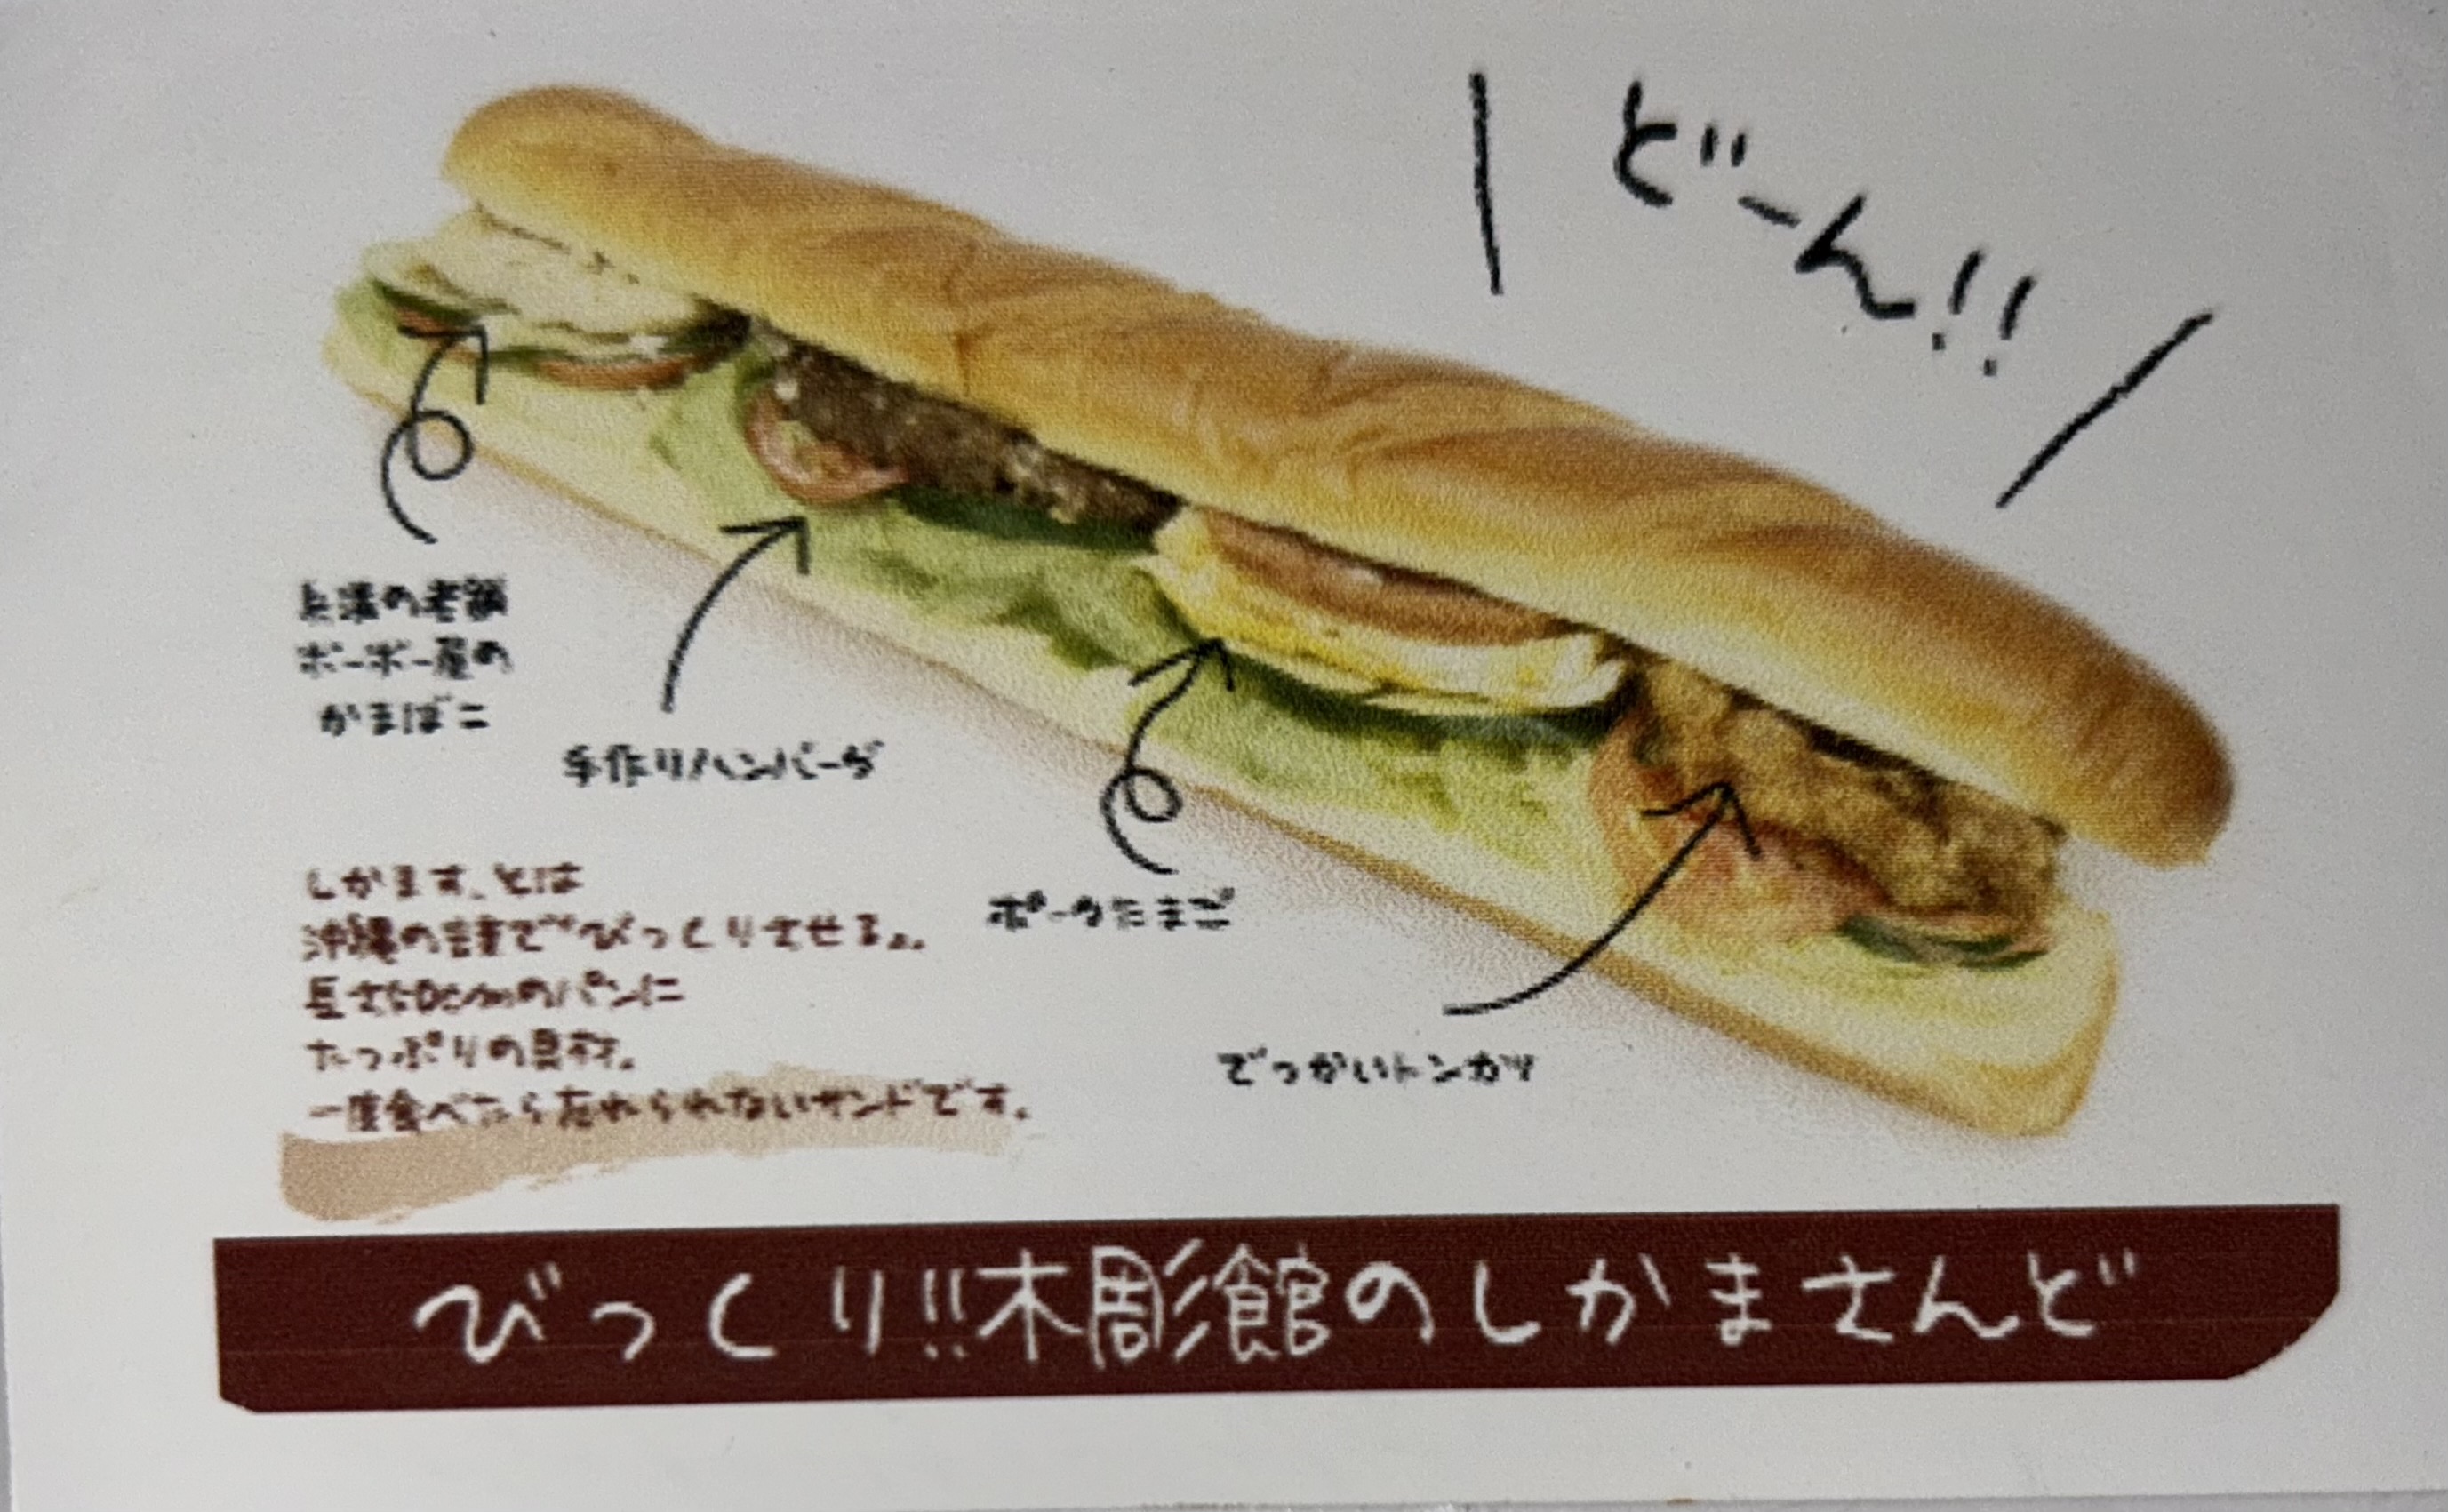 どーん!!
兵漕の老舗
ボーボー屋の
かまぼこ
手作りハンバーグ
ポークたまご
でっかいトンカツ
しかます。とは
沖縄の言葉で“びっくりさせる”。
長さ50cmのパンに
たっぷりの具材。
一度食べたら忘れられないサンドです。
びっくり!!木彫館のしかまさんど